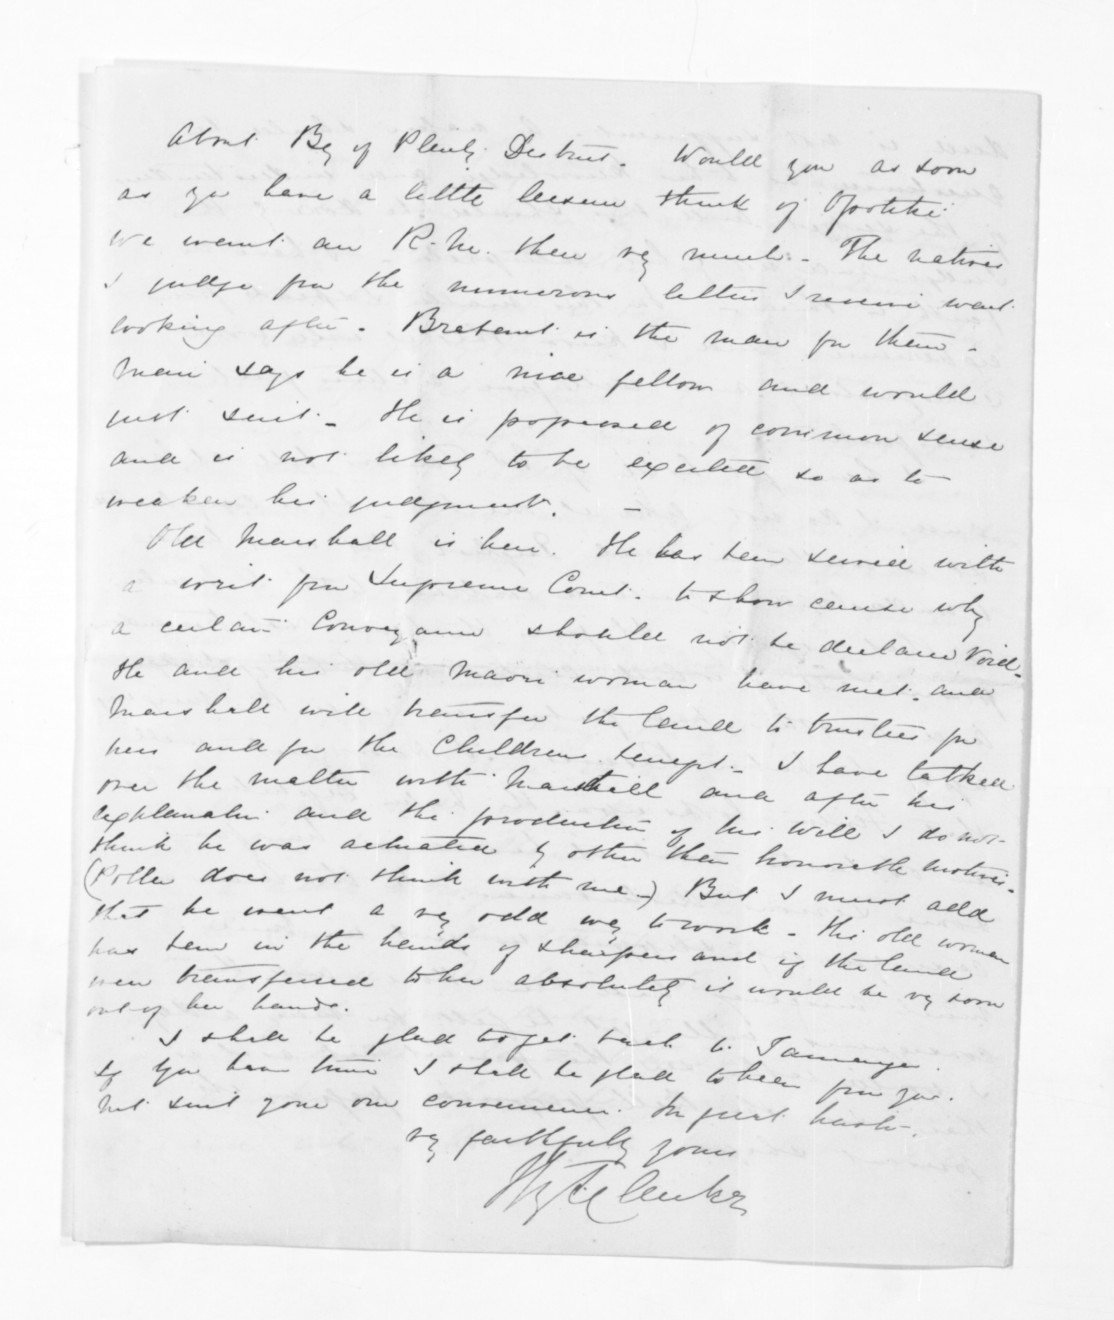 About Bay of Plenty District. Would you as soon
as you have a little leisure think of Opotiki
We want an R.M. there very much. The natives
I judge from the numerous letters I receive want
looking after. Brabant is the man for them.
Mair says he is a nice fellow and would
just suit. He is possessed of common sense
and is not likely to be excited so as to
weaken his judgment. —
Old Marshall is here. He has been served with
a writ from Supreme Court. to show cause why
a certain Conveyance should not be declared Void.
He and his old Maori woman have met and
Marshall will transfer the land to trustees for
hers and for the Childrens benefit. I have talked
over the matter with Marshall and after his
explanation and the production of his will I do not
think he was actuated by other than honorable motives.
(Poller does not think with me.) But I must add
that he went a very odd way to work. The old woman
has been in the hands of sharpers and if the land
were transferred to her absolutely it would be very soon
out of her hands.
I shall be glad to get back to Tauranga.
If you have time I shall be glad to hear from you.
but suit your own convenience. In great haste.
very faithfully yours
H T Clarke